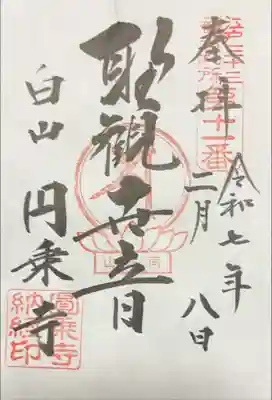 奉拝
江戸三十三
第十一番
令和七年
二月八日
聖観世音
白山
円乗寺
圓乗寺
納経印